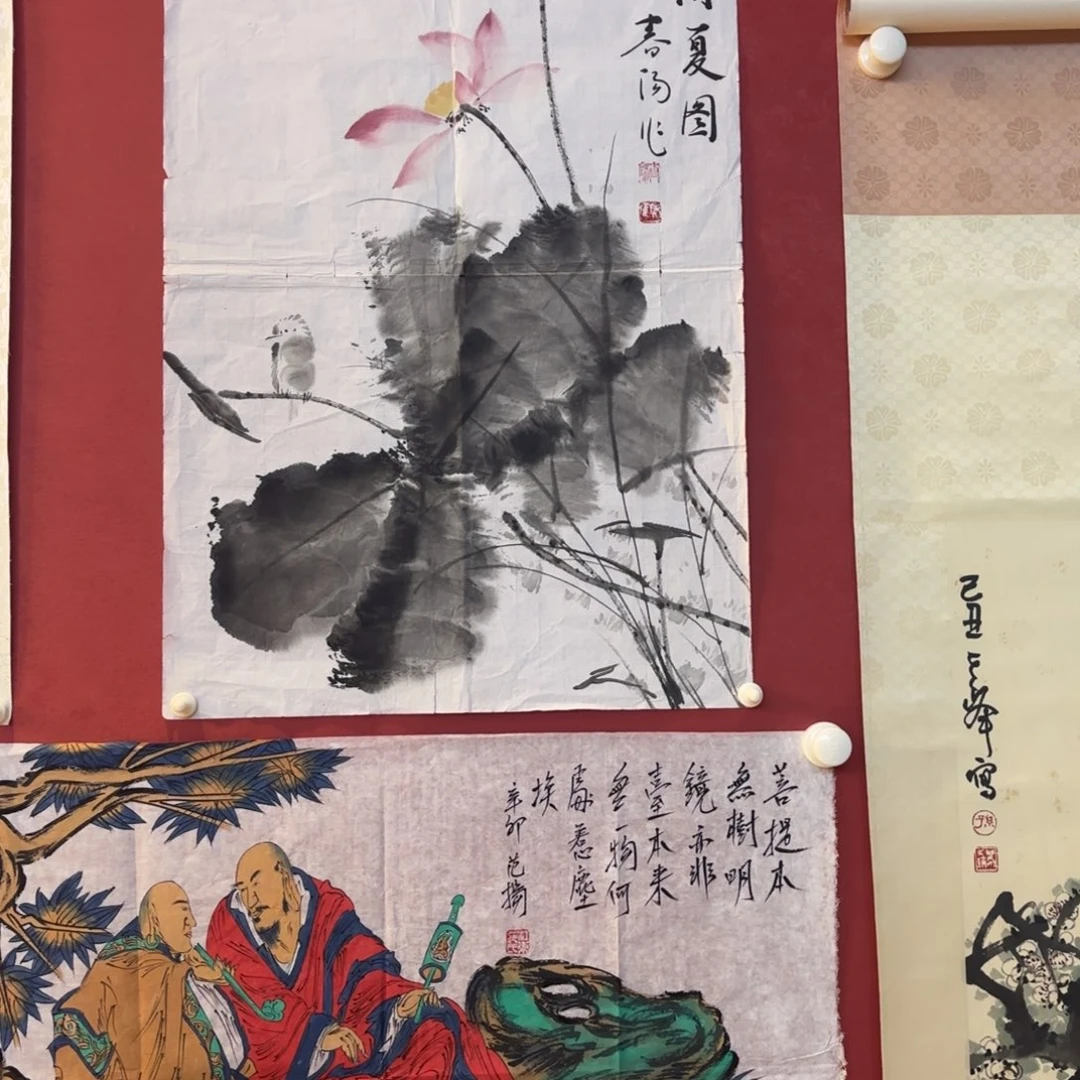 夏图
春阳作
菩提本
無樹明
鏡亦非
臺本来
無一物何
處惹塵
埃
辛卯 范擴
己丑
峰寫